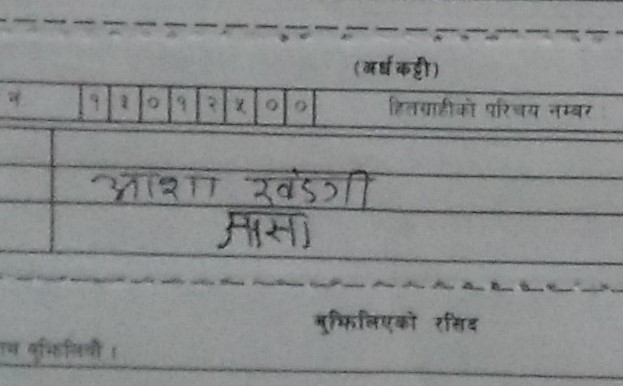 (अर्धकट्टी)
नं १३०१२५०० हितग्राहीको परिचय नम्बर
आशा खड्गी
बुझिलिएको रसिद
बुझिलियौ ।